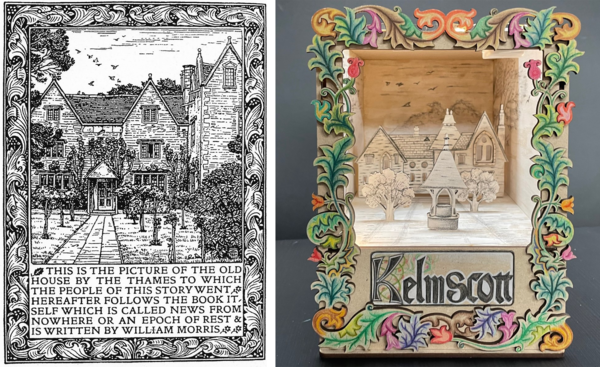 THIS IS THE PICTURE OF THE OLD
HOUSE BY THE THAMES TO WHICH
THE PEOPLE OF THIS STORY WENT.
HEREAFTER FOLLOWS THE BOOK IT-
SELF WHICH IS CALLED NEWS FROM
NOWHERE OR AN EPOCH OF REST &
IS WRITTEN BY WILLIAM MORRIS.
Kelmscott